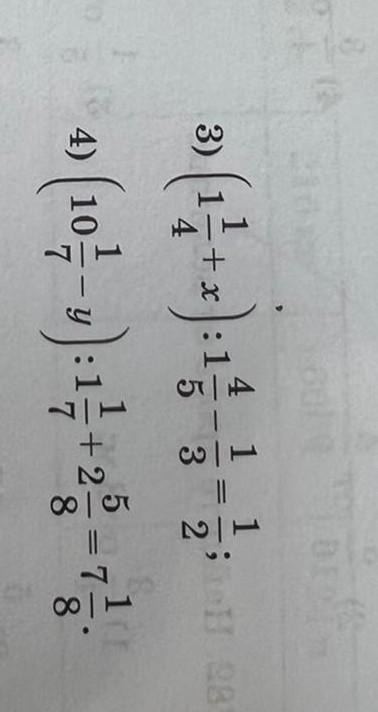 3) (1 1/4 + x) : 1 4/5 − 1/3 = 1/2;
4) (10 1/7 − y) : 1 1/7 + 2 5/8 = 7 1/8.